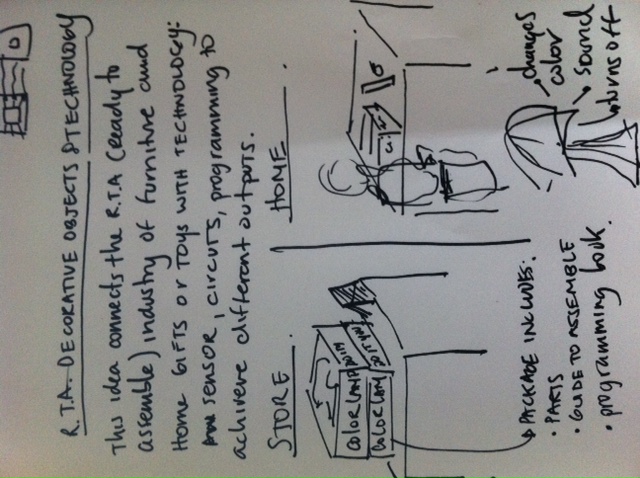 R.T.A. DECORATIVE OBJECTS & TECHNOLOGY
This idea connects the R.T.A (ready to
assemble) industry of furniture and
Home GIFTS or TOYS with TECHNOLOGY:
sensor, circuts, programming to
achivere different outputs.
STORE
COLOR LAMP
COLOR LAM
PACKAGE INCLUDES:
• PARTS
• GUIDE TO ASSEMBLE
• programming book.
HOME
changes
color
sound
turns off